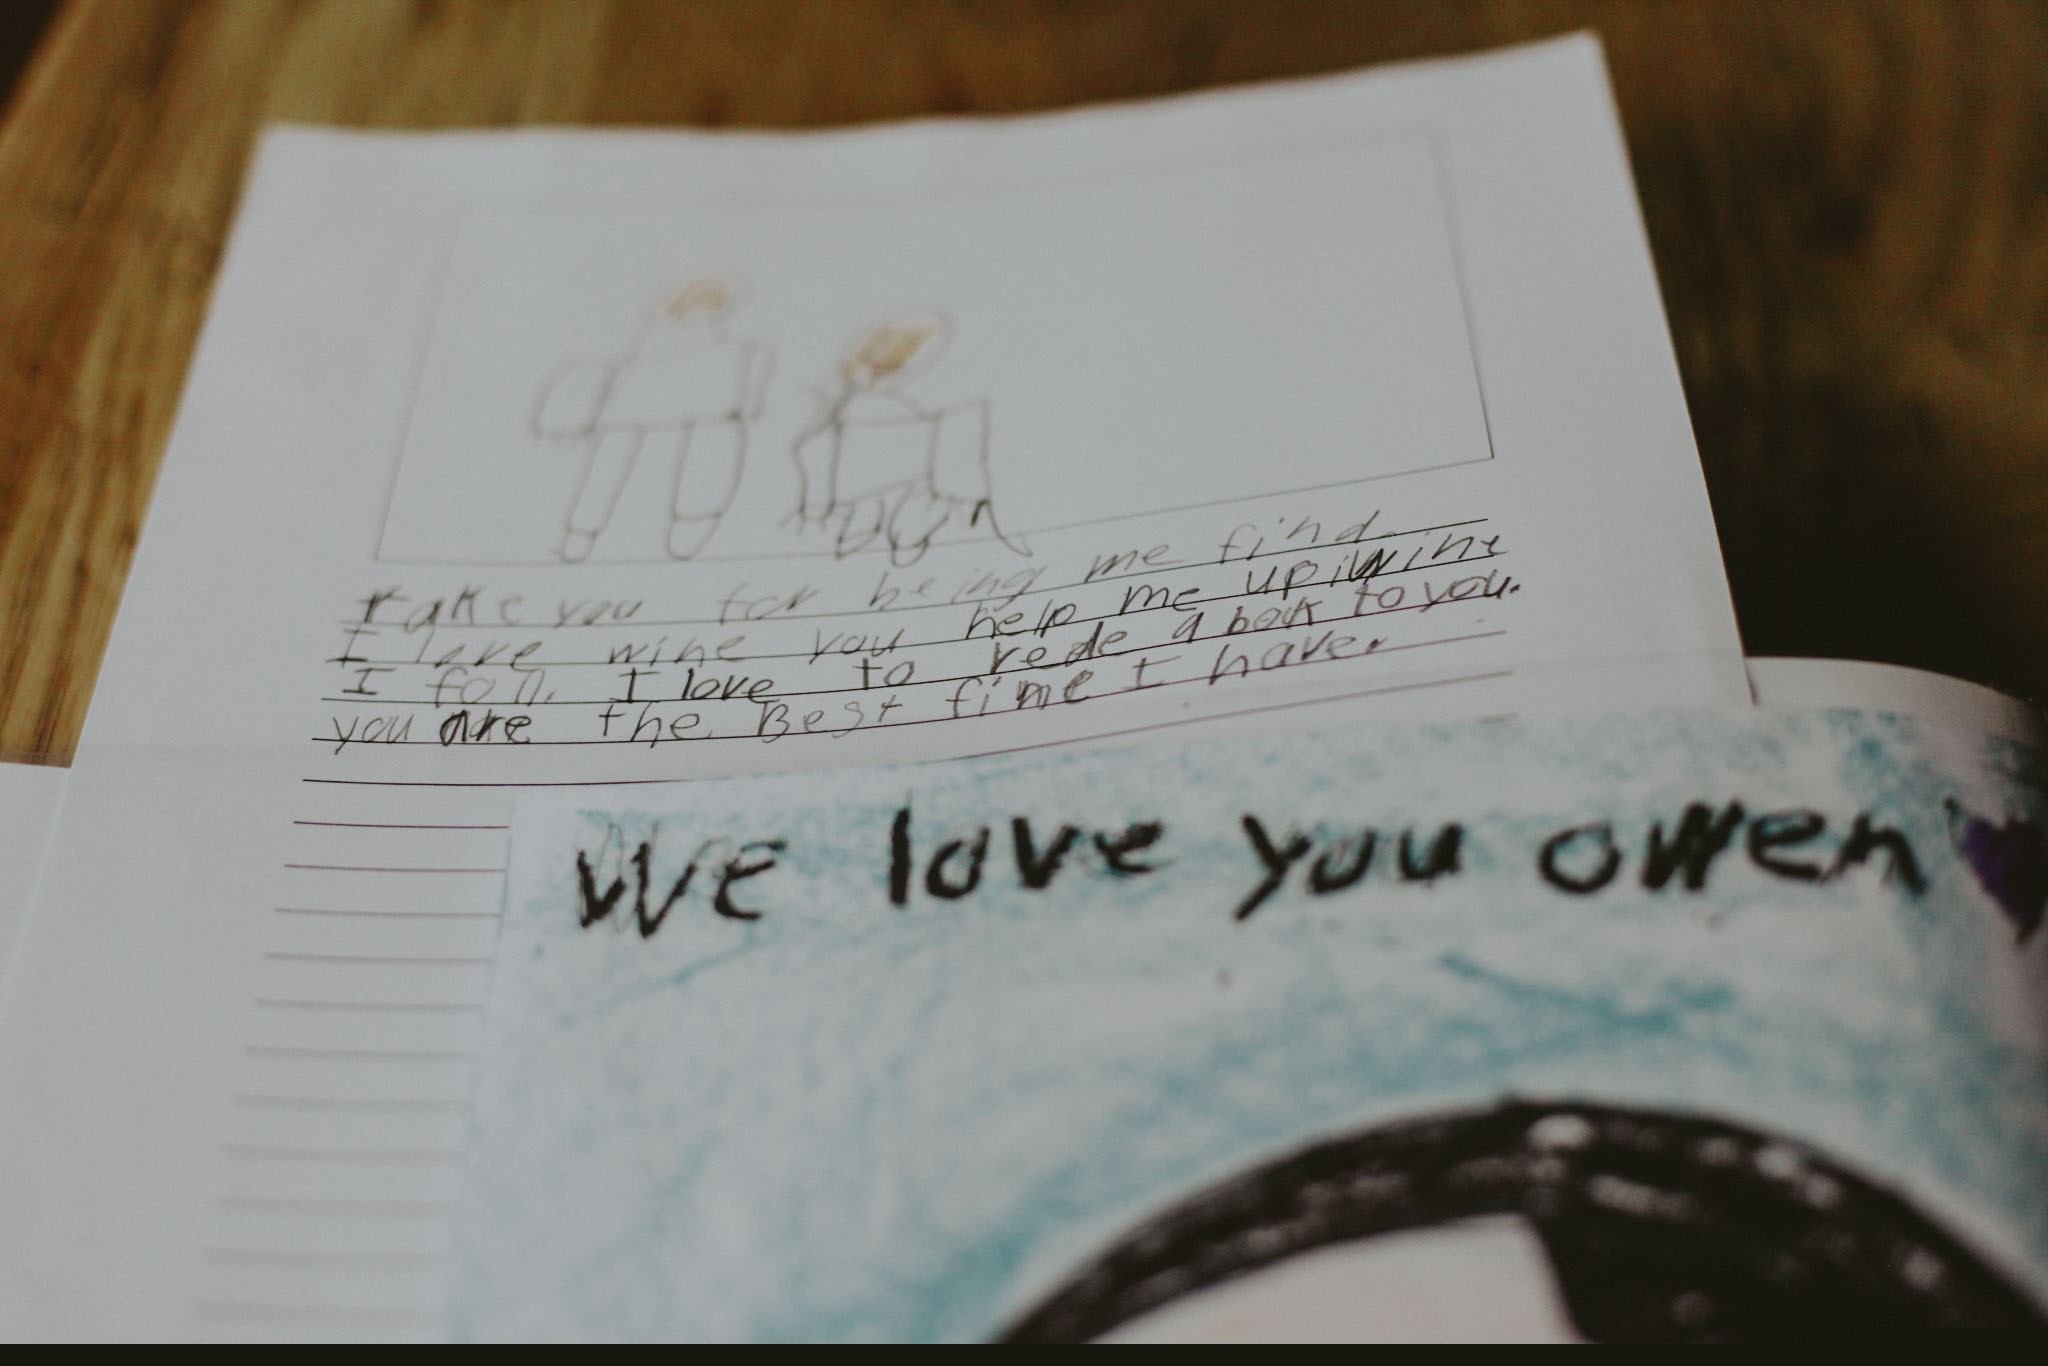 takc you for being me find.
I love wine you help me up wine
I fon. I love to rede a book to you.
you are the Best fime I have.
We love you owen